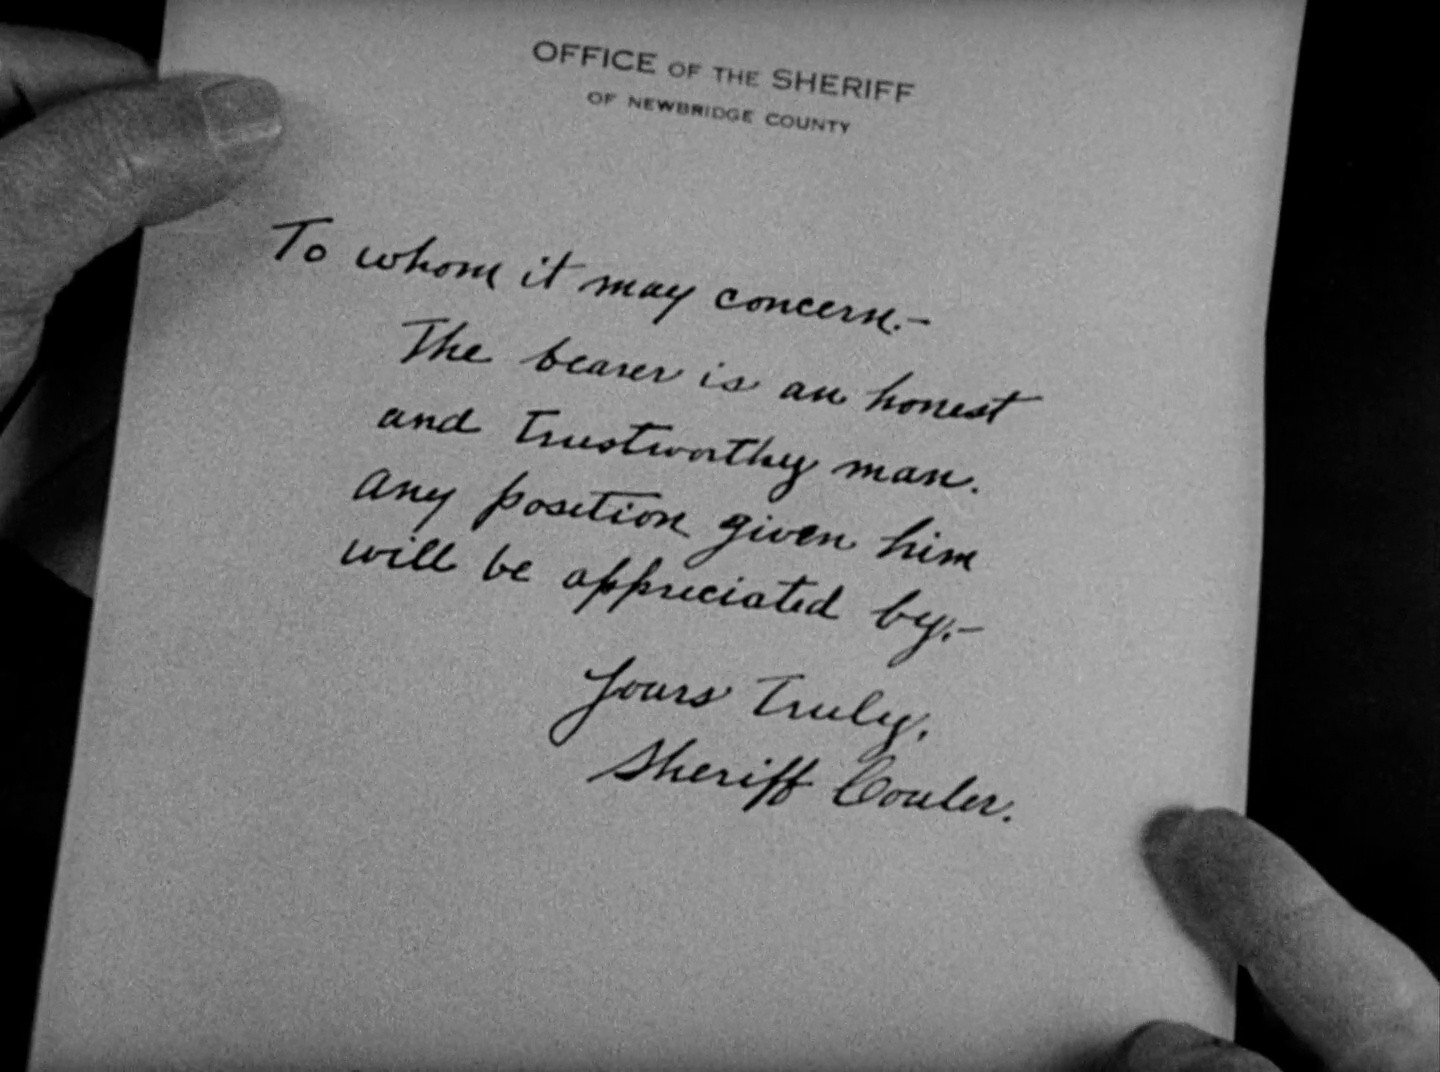 OFFICE OF THE SHERIFF
OF NEWBRIDGE COUNTY
To whom it may concern.—
The bearer is an honest
and trustworthy man.
Any position given him
will be appreciated by:—
Yours Truly,
Sheriff Couler.